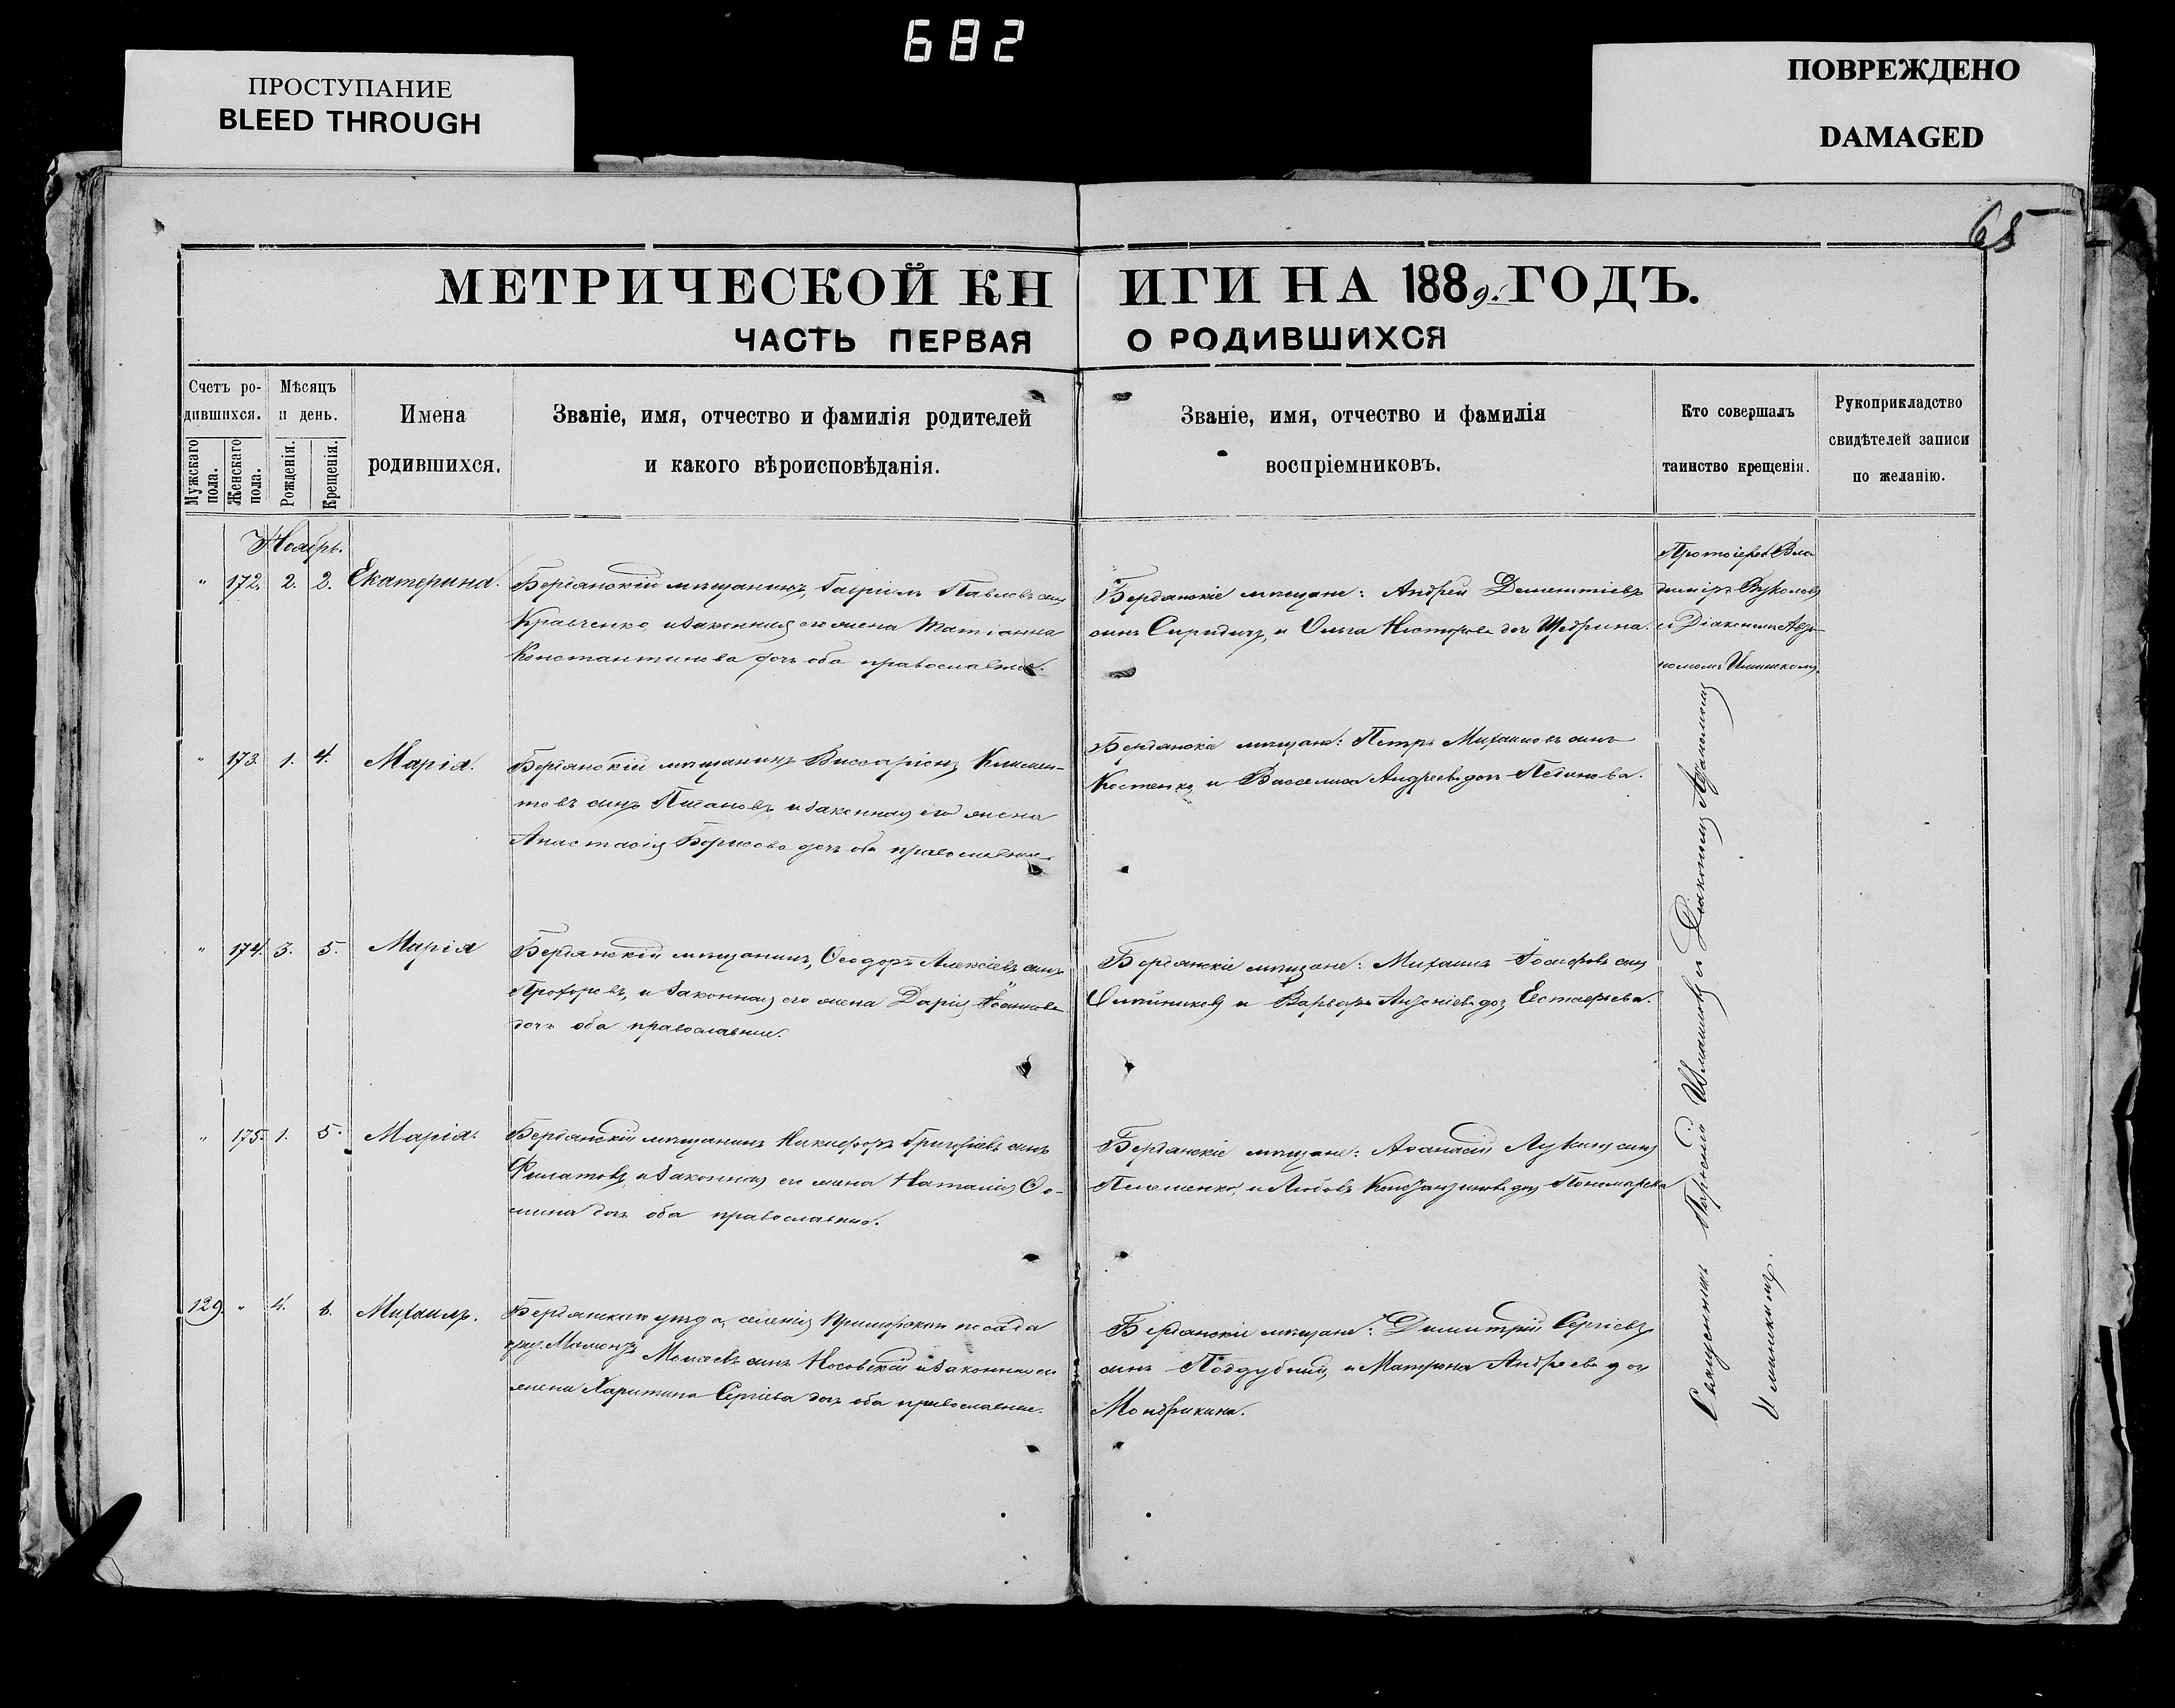 682
ПРОСТУПАНИЕ
BLEED THROUGH
ПОВРЕЖДЕНО
DAMAGED
65
МЕТРИЧЕСКОЙ КНИГИ НА 1889. ГОДЪ.
ЧАСТЬ ПЕРВАЯ О РОДИВШИХСЯ
Счетъ ро-
дившихся.
Мужскаго
пола.
Женскаго
пола.
Мѣсяцъ
и день.
Рожденія.
Крещенія.
Имена
родившихся.
Званіе, имя, отчество и фамилія родителей
и какого вѣроисповѣданія.
Званіе, имя, отчество и фамилія
воспріемниковъ.
Кто совершалъ
таинство крещенія.
Рукоприкладство
свидѣтелей записи
по желанію.
Ноябрь.
" 172. 2. 2. Екатерина.
Бердянскій мѣщанинъ, Гавріилъ Павловъ сынъ
Кравченко, и законная его жена Татіанна
Константинова дочь оба православные.
Бердянскіе мѣщане: Андрей Дементіевъ
сынъ и Ольга Несторова дочь Щедрина.
Протоіерей Вла
диміръ
и Діакономъ
" 173. 1. 4. Марія.
Бердянскій мѣщанинъ Виссаріонъ Климен-
товъ сынъ и законная его жена
Анастасія Борисова дочь оба православные
Бердянскіе мѣщане: Петръ Михаиловъ сынъ
Костенко, и Андреева дочь
" 174. 3. 5. Марія
Бердянскій мѣщанинъ, Ѳеодоръ Алексіевъ сынъ
Прохоровъ, и законная его жена Дарія Іоаннова
дочь оба православные.
Бердянскіе мѣщане: Михаилъ Іосифовъ сынъ
и Варвара дочь Евстафьева.
" 175. 1. 5. Марія.
Бердянскій мѣщанинъ Никифоръ Григоріевъ сынъ
Филатовъ, и законная его жена Наталія Ѳо-
мина дочь оба православные.
Бердянскіе мѣщане: Аѳанасій Лукинъ сынъ
и Любовь Константинова дочь Пономарева
129. " 4. Михаилъ.
Бердянскаго уѣзда, селенія посада
Моисеевъ сынъ Носовскій и законная его
жена Харитина Сергіева дочь оба православные.
Бердянскіе мѣщане: Димитрій Сергіевъ
сынъ Поддубный, и Матрона Андреева дочь
Мондрикина.
Священникъ и Діакономъ